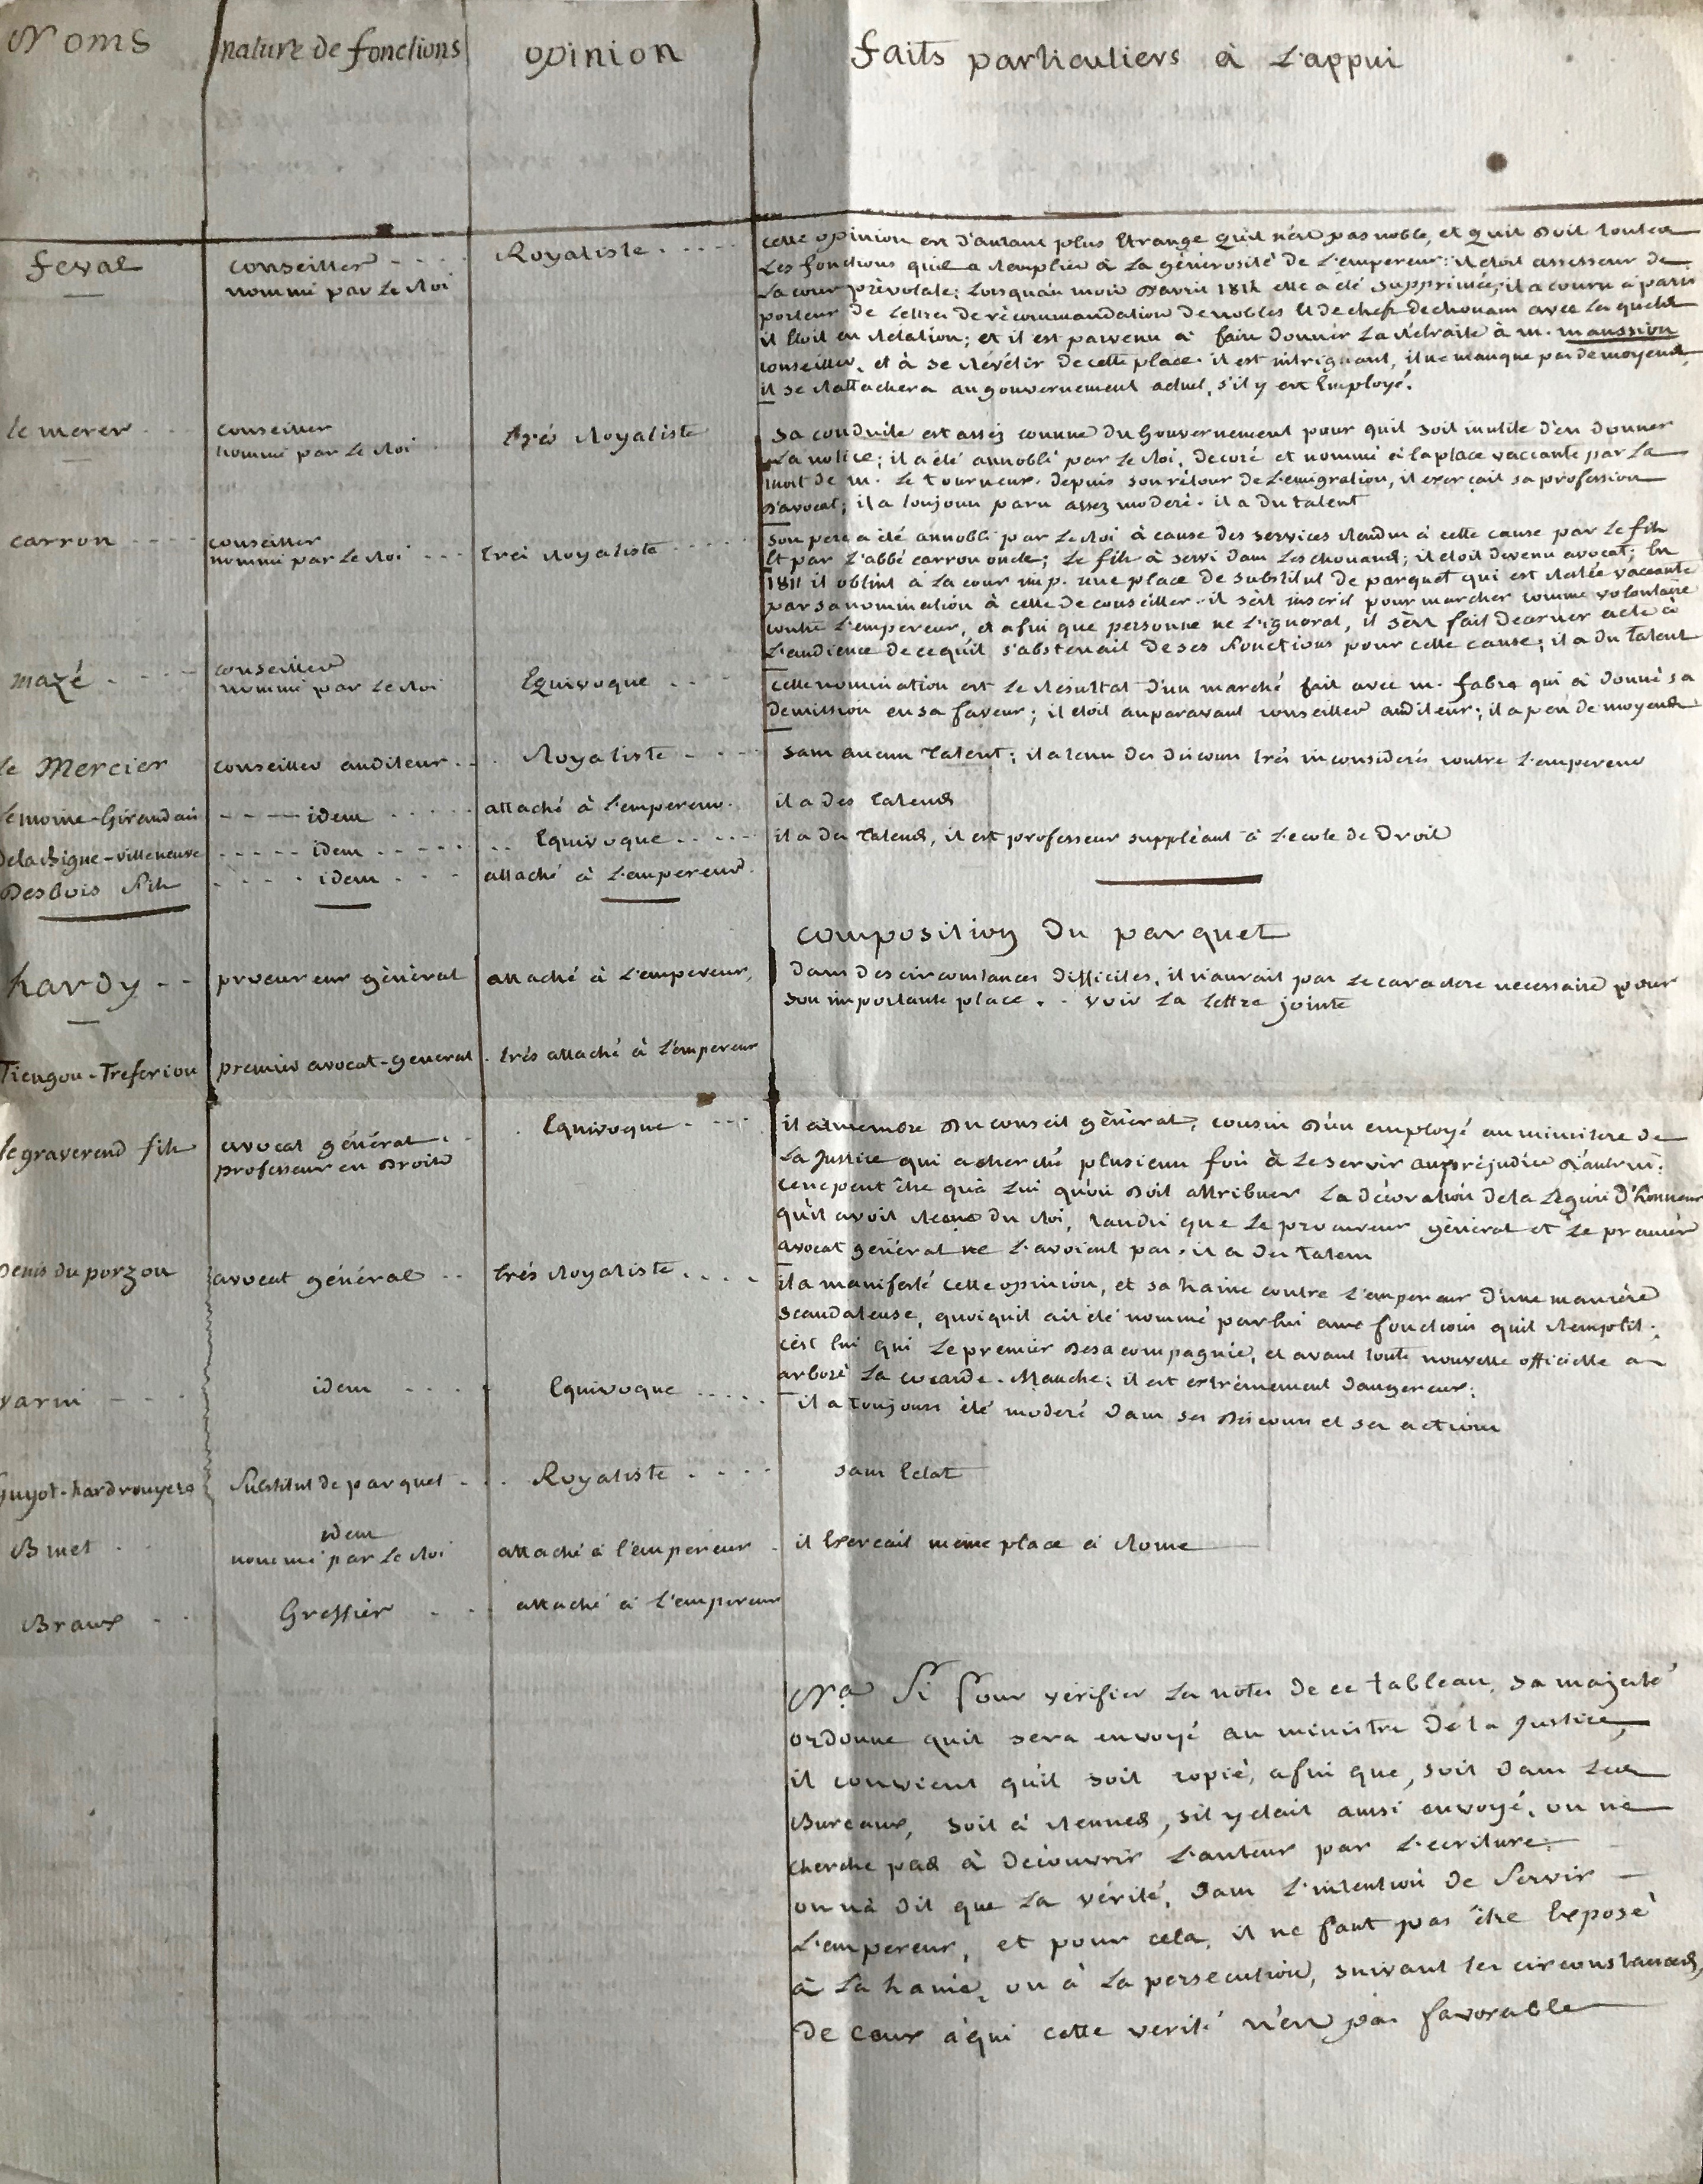 Noms
nature de fonctions
opinion
faits particuliers à L'appui
feval
conseiller
nommé par Le Roi
Royaliste
cette opinion est d'autant plus Etrange qu'il n'est pas noble, et qu'il doit toutes
Les fonctions qu'il a Remplies à La générosité de L'empereur: il étoit assesseur de
La cour prévotale; Lorsqu'au mois d'avril 1814 elle a été supprimée, il a couru à paris
porteur de Lettres de récommandation de nobles Et de chefs de chouans avec Lesquels
il Etoit en Relation; et il est parvenu à faire donner La Rétraite à m. maussion
conseiller, et à se Révétir de cette place. il est intriguant, il ne manque pas de moyens
il se Rattachera au gouvernement actuel, s'il y est Employé.
le merer
conseiller
nommé par Le Roi
très Royaliste
sa conduite est assez connue du Gouvernement pour qu'il soit inutile d'en donner
La notice; il a été annobli par Le Roi, décoré et nommé à la place vaccante par La
mort de m. Le tourneur. depuis son rétour de L'émigration, il exerçait sa profession
d'avocat; il a toujours paru assez moderé. il a du talent
carron
conseiller
nommé par Le Roi
très Royaliste
son pere a été annobli par Le Roi à cause des services Rendus à cette cause par Le fils
Et par L'abbé carron oncle; Le fils à servi dans Les chouans; il étoit devenu avocat; En
1811 il obtint à La cour imp. une place de substitut de parquet qui est Restée vaccante
par sa nomination à celle de conseiller. il s'est inscrit pour marcher comme volontaire
contre L'empereur, et afin que personne ne L'ignorat, il s'est fait décerner acte à
L'audience de ce qu'il s'abstenait de ses fonctions pour cette cause; il a du talent
mazé
conseiller
nommé par Le Roi
Equivoque
cette nomination est Le Résultat d'un marché fait avec m. fabre qui à donné sa
demission en sa faveur; il étoit auparavant conseiller auditeur; il a peu de moyens
le Mercier
conseiller auditeur
Royaliste
sans aucun talent; il a tenu des discours très inconsiderés contre L'empereur
Lemoine-Giraudais
idem
attaché à L'empereur
il a des talens
Delabigne-villeneuve
idem
Equivoque
il a des talens, il est professeur suppléant à L'école de Droit
Desbois fils
idem
attaché à L'empereur
composition du parquet
hardy
procureur général
attaché à L'empereur
dans des circonstances difficiles, il n'aurait pas Le caractere necessaire pour
son importante place. - voir La lettre jointe
Tiengou-Treferiou
premier avocat-general
très attaché à L'empereur
le graverend fils
avocat général
professeur en droit
Equivoque
il est membre du conseil général, cousin d'un employé au ministere de
La Justice qui a cherché plusieurs fois à Le servir au préjudice d'autrui:
ce ne peut être qu'à Lui qu'on doit attribuer La décoration de la Légion d'honneur
qu'il avoit Reçue du Roi, tandis que Le procureur général et Le premier
avocat général ne L'avoient pas. il a des talens
Denis du porzou
avocat général
très Royaliste
il a manifesté cette opinion, et sa haine contre L'empereur d'une manière
scandaleuse, quoiqu'il ait été nommé par lui aux fonctions qu'il Remplit.
c'est lui qui Le premier de sa compagnie, et avant toute nouvelle officielle a
arboré La cocarde Blanche; il est extrêmement dangereux:
varin
idem
Equivoque
il a toujours été moderé dans ses discours et ses actions
Guyot-hardrouyere
Substitut de parquet
Royaliste
sans Eclat
Binet
idem
nommé par Le Roi
attaché à l'empereur
il Exercait même place à Rome
Braux
Greffier
attaché à L'empereur
Na Si Pour verifier Les notes de ce tableau, sa majesté
ordonne qu'il sera envoyé au ministre de la Justice,
il convient qu'il soit copié, afin que, soit dans Les
Bureaux, soit à Rennes, s'il y était aussi envoyé, on ne
cherche pas à découvrir L'auteur par L'ecriture.
on n'a dit que La vérité, dans L'intention de Servir
L'empereur, et pour cela, il ne faut pas être Exposé
à La haine, ou à La persecution, suivant les circonstances,
de ceux à qui cette verité n'est pas favorable